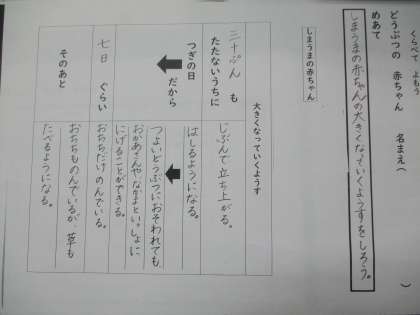 くらべて よもう
どうぶつの 赤ちゃん 名まえ( )
めあて
しまうまの赤ちゃんの大きくなっていくようすをしろう。
しまうまの赤ちゃん
大きくなっていくようす
三十ぷん も
たたないうちに
じぶんで立ち上がる。
つぎの日
はしるようになる。
だから
つよいどうぶつにおそわれても
おかあさんやなかまといっしょに
にげることができる。
七日 ぐらい
おちちだけのんでいる。
そのあと
おちちものんでいるが、草も
たべるようになる。